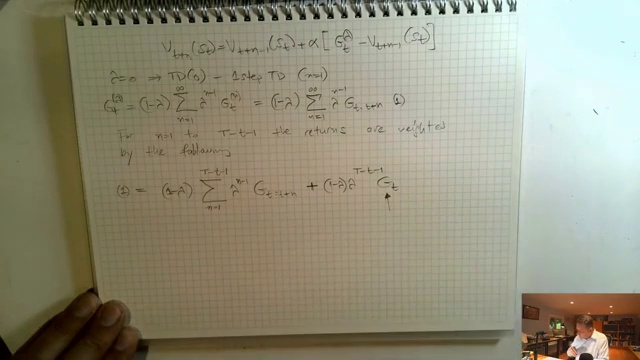 V_{t+n}(S_t) = V_{t+n-1}(S_t) + α[G_t^λ − V_{t+n-1}(S_t)]
λ=0 ⇒ TD(0) – 1 step TD (n=1)
G_t^{(λ)} = (1-λ) ∑_{n=1}^{∞} λ^{n-1} G_t^{(n)} = (1-λ) ∑_{n=1}^{∞} λ^{n-1} G_{t:t+n} (1)
For n=1 to T-t-1 the returns are weighted
by the following
(1) = (1-λ) ∑_{n=1}^{T-t-1} λ^{n-1} G_{t:t+n} + (1-λ)λ^{T-t-1} G_t